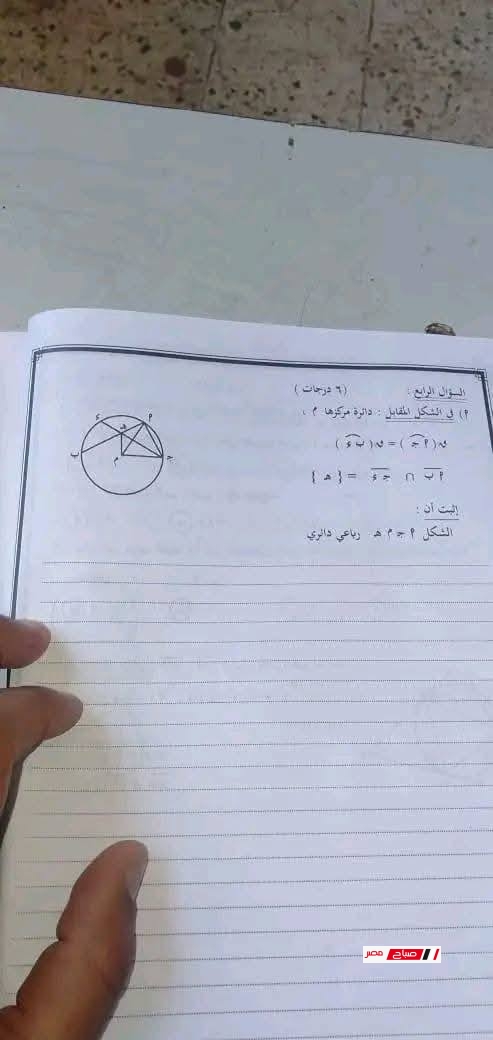 السؤال الرابع : (٦ درجات)
٩) في الشكل المقابل : دائرة مركزها م ،
ق(٩ج) = ق(بء)
٩ب ∩ جء = {ه}
إثبت أن :
الشكل ٩ ج م ه رباعي دائري
ء
٩
ه
ب
م
ج
صباح مصر